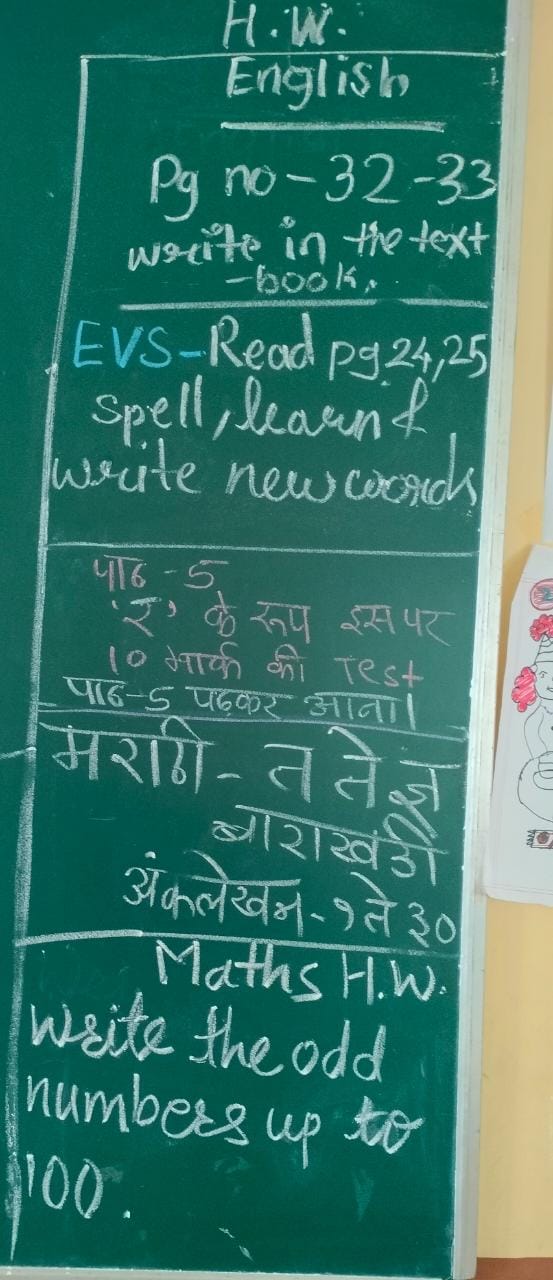 H.W.
English
Pg no - 32-33
write in the text
-book.
EVS-Read pg.24,25
spell, learn &
write new words
पाठ - 5
'र' के रूप इस पर
10 मार्क की Test
पाठ-5 पढ़कर आना।
मराठी - त ते ज्ञ
बाराखडी
अंकलेखन - १ ते ३०
Maths H.W.
Write the odd
numbers up to
100.